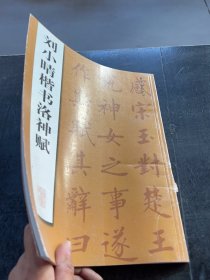 刘小晴楷书洛神赋
感宋玉對楚王
神女之事遂
作斯賦其辭曰